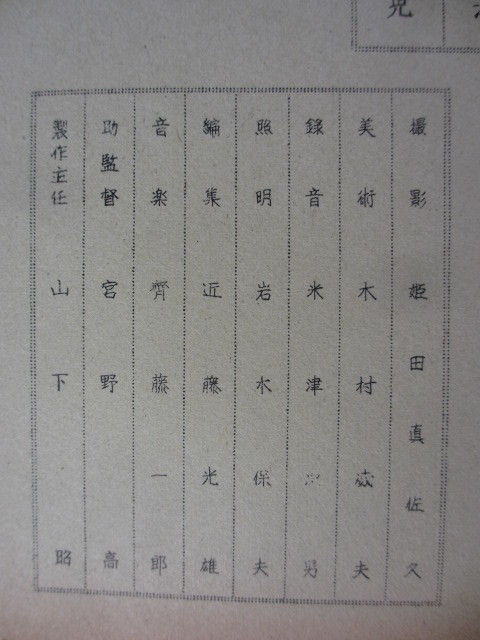 児
撮影 姫田真佐久
美術 木村威夫
録音 米津次男
照明 岩水保夫
編集 近藤光雄
音楽 齊藤一郎
助監督 宮野高
製作主任 山下昭